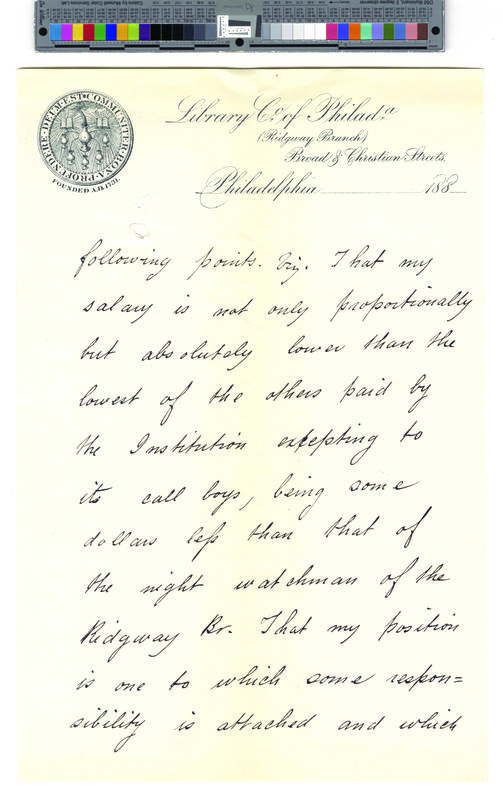 Library Co. of Philada
(Ridgway Branch)
Broad & Christian Streets,
Philadelphia 188
COMMUNITER·BONA·PROFUNDERE·DEUM·EST
FOUNDED A.D. 1731.
following points. Viz. That my
salary is not only proportionally
but absolutely lower than the
lowest of the others paid by
the Institution excepting to
its call boys, being some
dollars less than that of
the night watchman of the
Ridgway Br. That my position
is one to which some respon=
sibility is attached and which